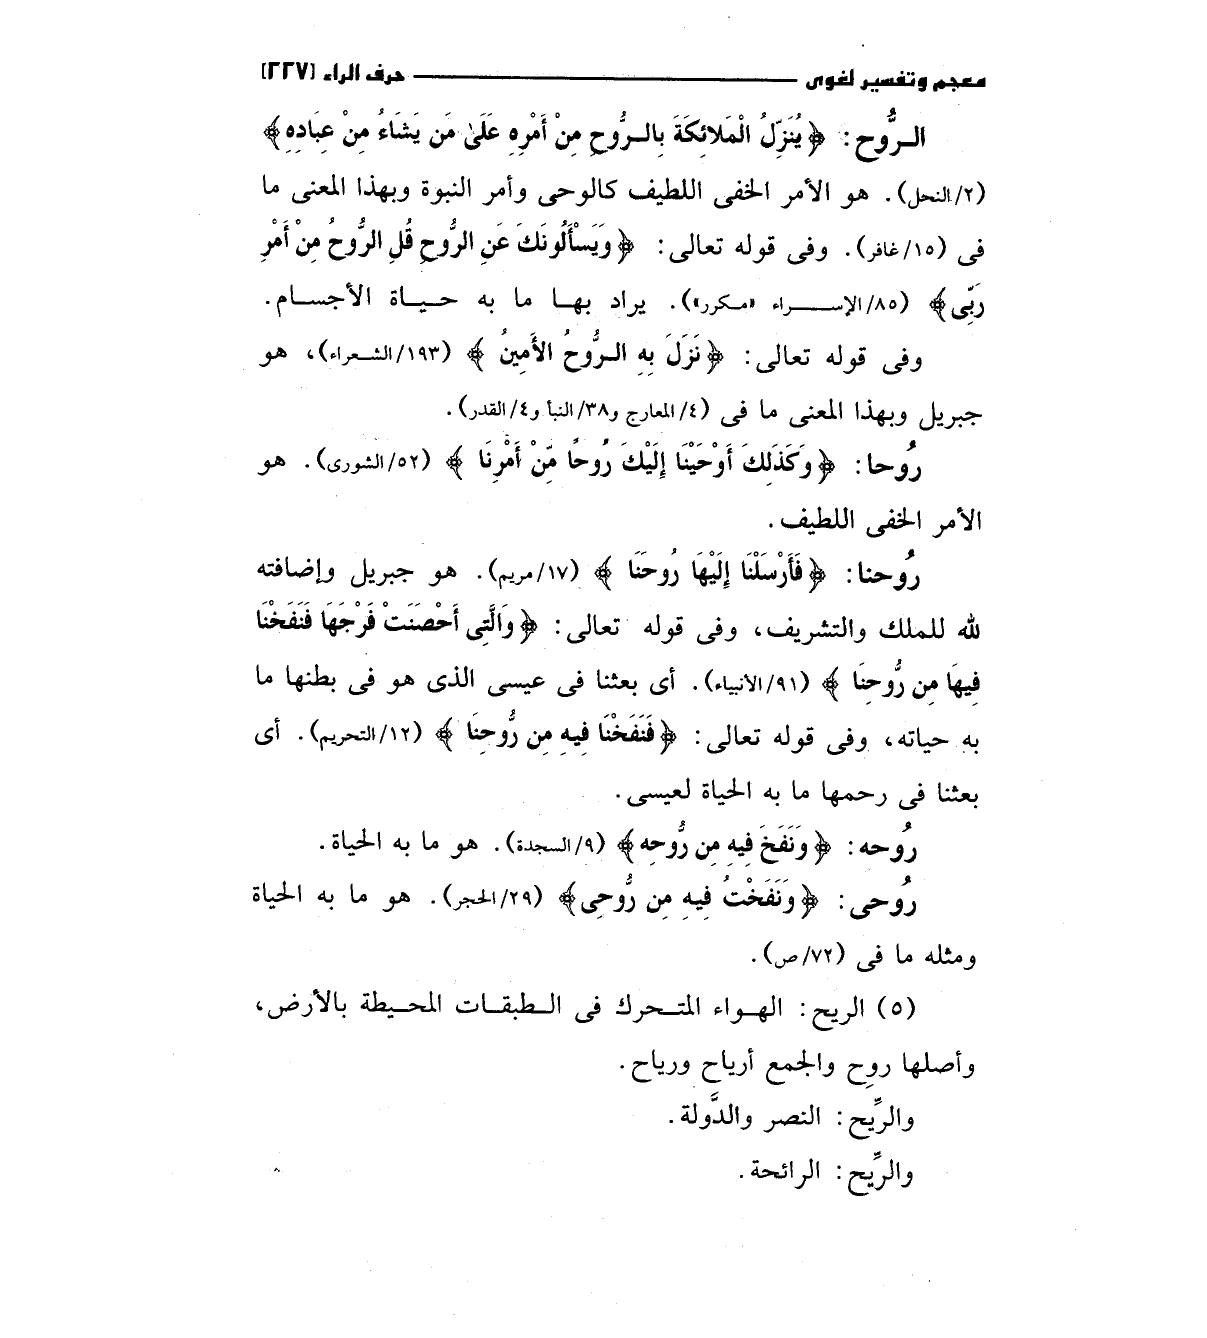 معجم وتفسير لغوى ــــــ حرف الراء [٢٢٧]
الـرُّوح: ﴿يُنَزِّلُ الْمَلائِكَةَ بِالـرُّوحِ مِنْ أَمْرِهِ عَلَىٰ مَن يَشَاءُ مِنْ عِبَادِهِ﴾
(٢/النحل). هو الأمر الخفى اللطيف كالوحى وأمر النبوة وبهذا المعنى ما
فى (١٥/غافر). وفى قوله تعالى: ﴿وَيَسْأَلُونَكَ عَنِ الرُّوحِ قُلِ الرُّوحُ مِنْ أَمْرِ
رَبِّى﴾ (٨٥/الإسـراء «مـكرر»). يراد بهـا ما به حـيـاة الأجسـام.
وفى قوله تعالى: ﴿نَزَلَ بِهِ الـرُّوحُ الأَمِينُ﴾ (١٩٣/الشـعراء)، هو
جبريل وبهذا المعنى ما فى (٤/المعارج و٣٨/النبأ و٤/القدر).
رُوحا: ﴿وَكَذَلِكَ أَوْحَيْنَا إِلَيْكَ رُوحًا مِّنْ أَمْرِنَا﴾ (٥٢/الشورى). هو
الأمر الخفى اللطيف.
رُوحنا: ﴿فَأَرْسَلْنَا إِلَيْهَا رُوحَنَا﴾ (١٧/مريم). هو جبريل وإضافته
لله للملك والتشريف، وفى قوله تعالى: ﴿وَالَّتِى أَحْصَنَتْ فَرْجَهَا فَنَفَخْنَا
فِيهَا مِن رُّوحِنَا﴾ (٩١/الأنبياء). أى بعثنا فى عيسى الذى هو فى بطنها ما
به حياته، وفى قوله تعالى: ﴿فَنَفَخْنَا فِيهِ مِن رُّوحِنَا﴾ (١٢/التحريم). أى
بعثنا فى رحمها ما به الحياة لعيسى.
رُوحه: ﴿وَنَفَخَ فِيهِ مِن رُّوحِهِ﴾ (٩/السجدة). هو ما به الحياة.
رُوحى: ﴿وَنَفَخْتُ فِيهِ مِن رُّوحِى﴾ (٢٩/الحجر). هو ما به الحياة
ومثله ما فى (٧٢/ص).
(٥) الريح: الهـواء المتـحرك فى الـطبقـات المحـيطة بالأرض،
وأصلها روح والجمع أرياح ورياح.
والرِّيح: النصر والدَّولة.
والرِّيح: الرائحة.